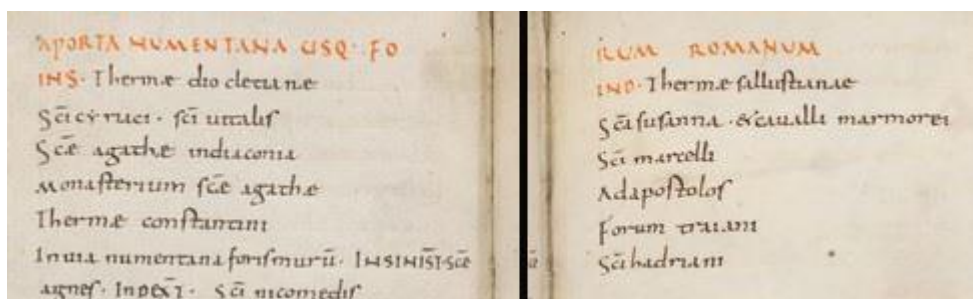 APORTA NUMENTANA USQ· FO
INS· Thermæ dio cletianæ
Sc̄i cyriaci· sc̄i uitalis
Sc̄e agathe indiaconia
Monasterium sc̄e agathe
Thermæ constantini
Inuia numentana forismurū· INSINIST̄· Sc̄e
agnes· INDEXT̄· Sc̄i nicomedis
RUM ROMANUM
IND· Thermæ sallustianae
Sc̄a susanna· & caualli marmorei
Sc̄i marcelli
Adapostolos
Forum traiani
Sc̄i hadriani